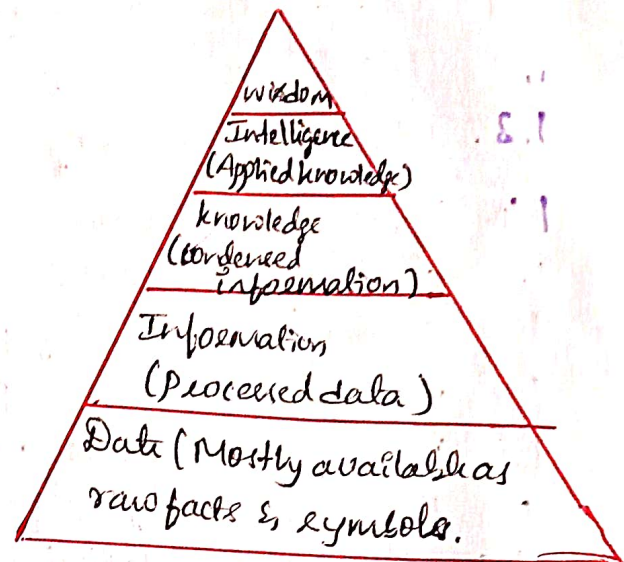 wisdom
Intelligence
(Applied knowledge)
knowledge
(condensed
information)
Information
(Processed data)
Data (Mostly available as
raw facts & symbols.